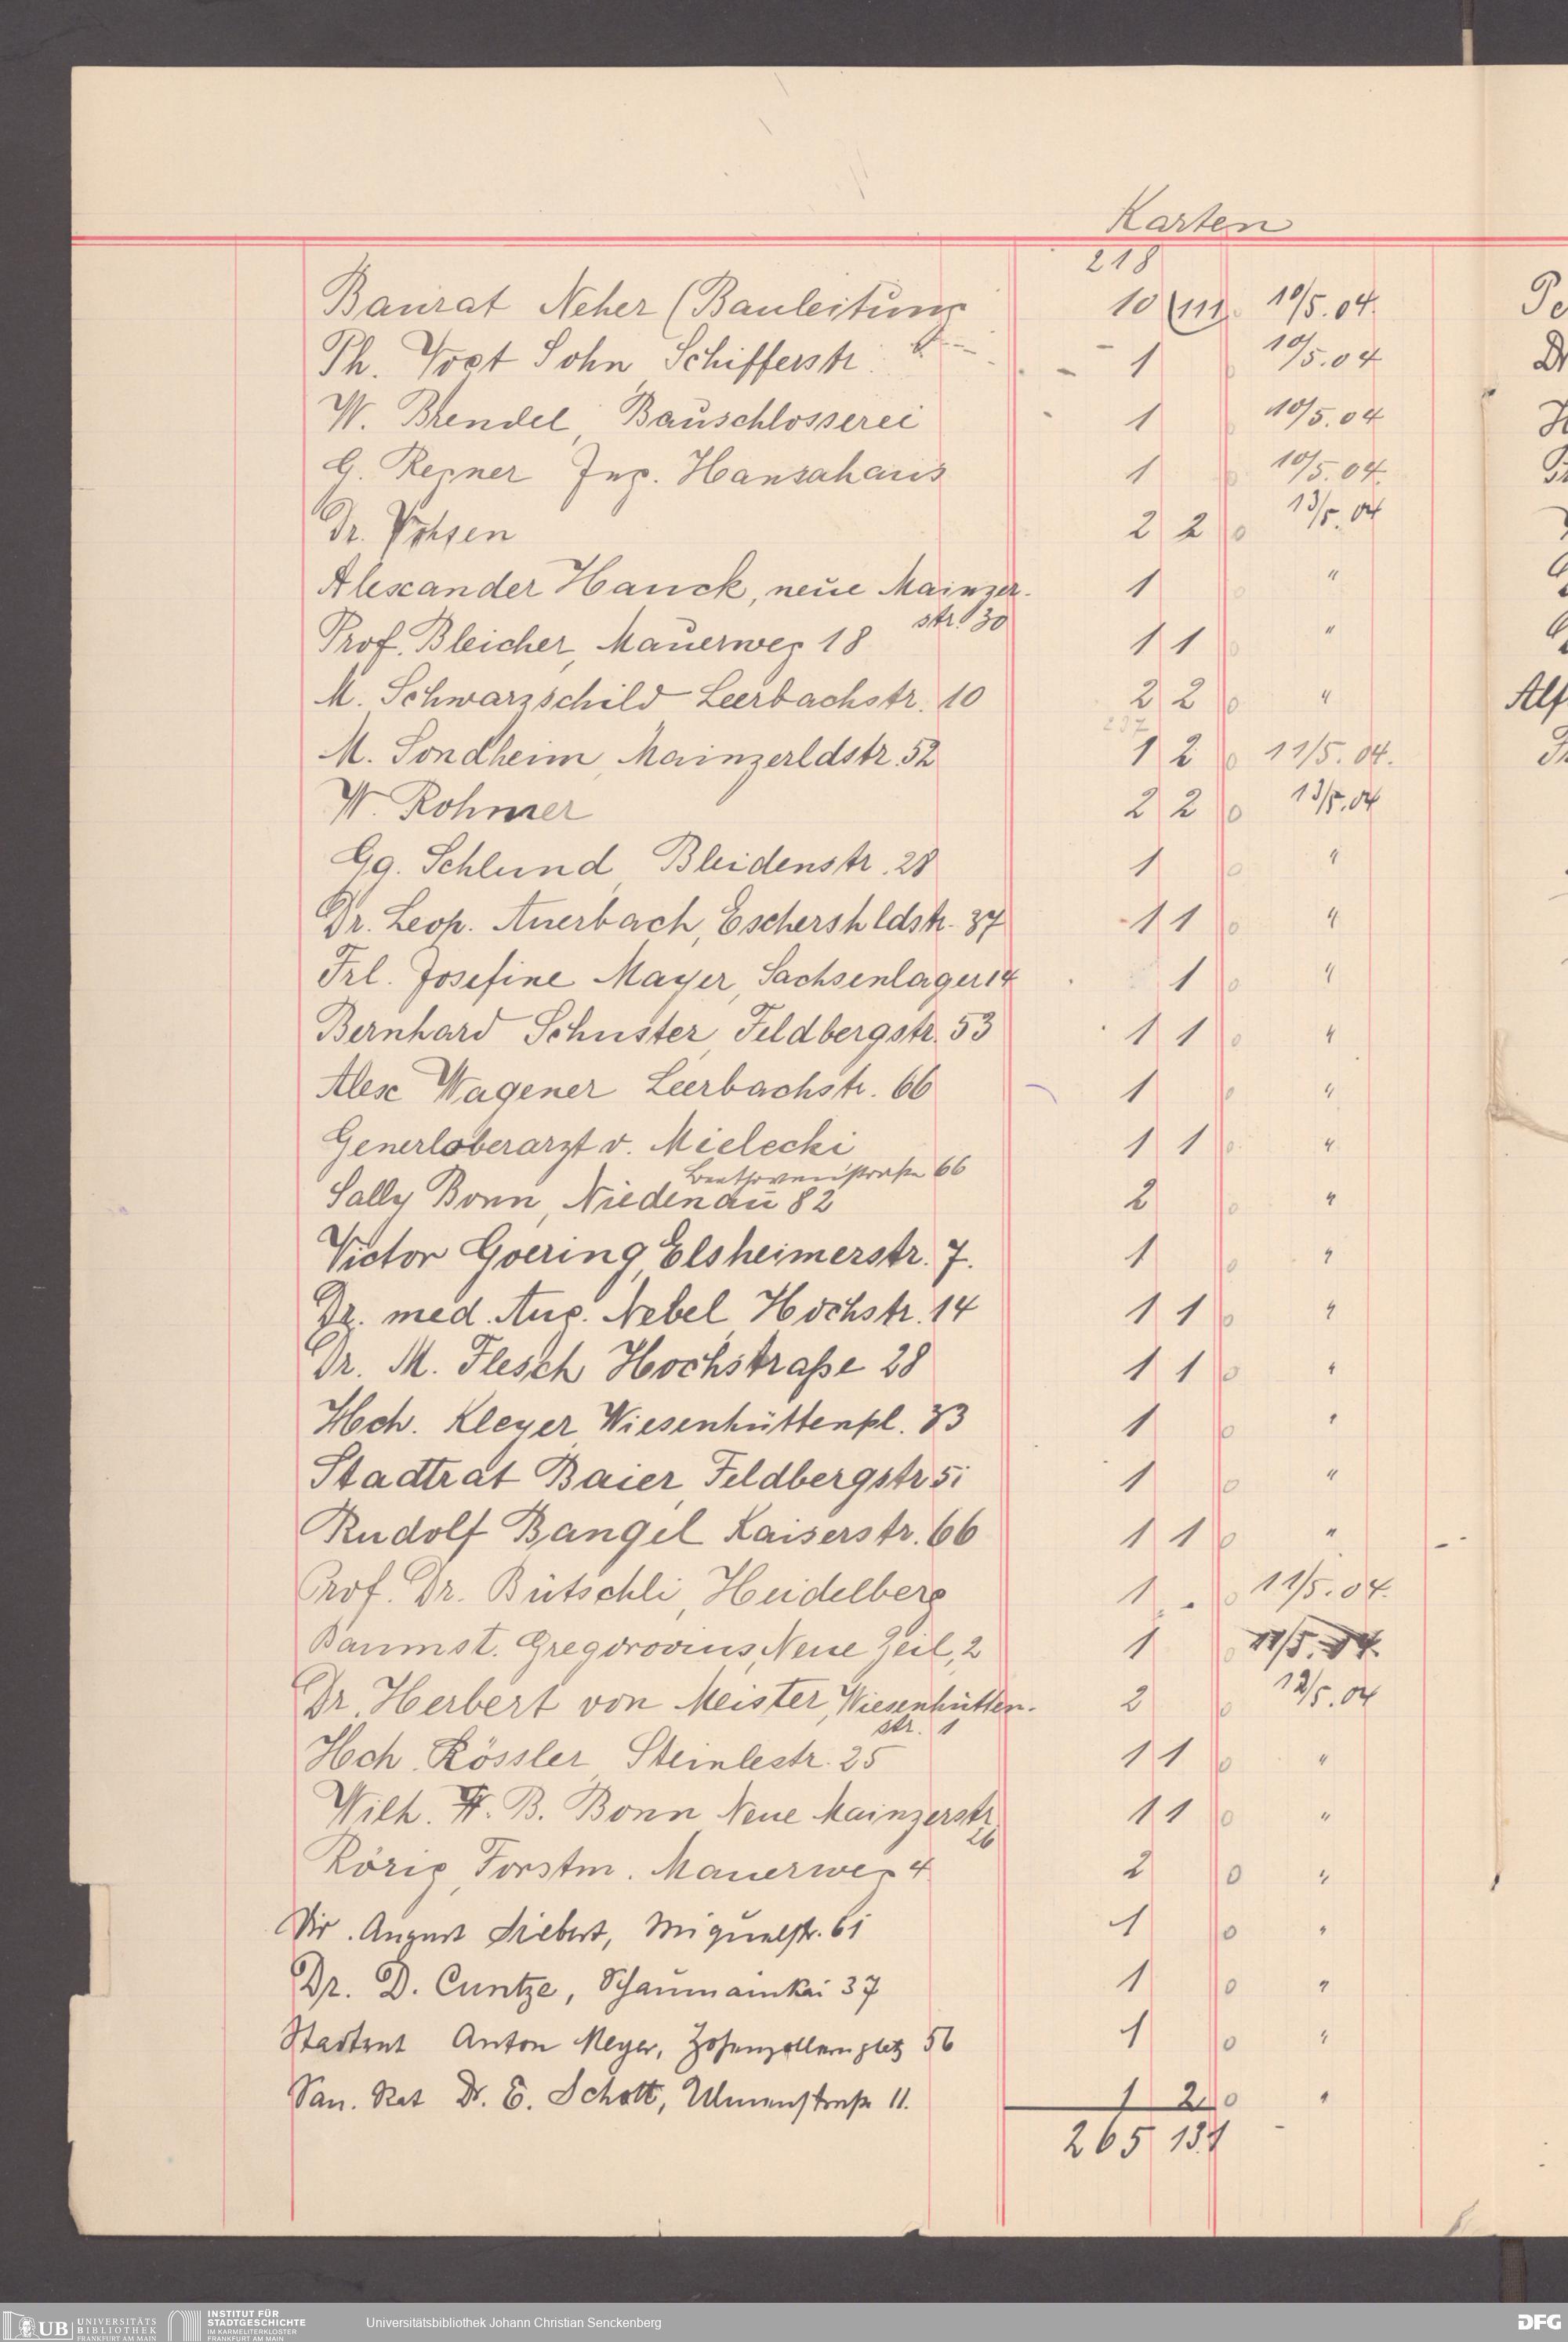 Karten
218
Baurat Neher (Bauleitung 10 (111) 10/5.04.
Ph. Vogt Sohn, Schifferstr. 1 10/5.04
W. Brendel, Bauschlosserei 1 10/5.04
G. Reiner Ing. Hansahaus 1 10/5.04.
Dr. Vohsen 2 2 0 13/5.04
Alexander Hauck, neue Mainzer- 1 0 "
str. 30
Prof. Bleicher, Mauerweg 18 1 1 0 "
M. Schwarzschild Leerbachstr. 10 2 2 0 "
237
M. Sondheim, Mainzerldstr. 52 1 2 0 11/5.04.
W. Rohmer 2 2 0 13/5.04
Gg. Schlund, Bleidenstr. 28 1 0 "
Dr. Leop. Auerbach, Eschershldstr. 37 1 1 0 "
Frl. Josefine Mayer, Sachsenlager 14 1 0 "
Bernhard Schuster, Feldbergstr. 53 1 1 0 "
Alex Wagener Leerbachstr. 66 1 0 "
Generloberarzt v. Mielecki 1 1 0 "
Beethovenstraße 66
Sally Bonn, Niedenau 82 2 0 "
Victor Goering, Elsheimerstr. 7. 1 0 "
Dr. med. Aug. Nebel, Hochstr. 14 1 1 0 "
Dr. M. Flesch Hochstraße 28 1 1 0 "
Hch. Kleyer, Wiesenhüttenpl. 33 1 0 "
Stadtrat Baier, Feldbergstr 51 1 0 "
Rudolf Bangel Kaiserstr. 66 1 1 0 "
Prof. Dr. Bütschli, Heidelberg 1 0 11/5.04.
Baumst. Gregorovius, Neue Zeil, 2 1 0 11/5.04.
Dr. Herbert von Meister, Wiesenhütten- 2 0 12/5.04
str. 1
Hch. Rössler, Steinlestr. 25 1 1 0 "
Wilh. B. Bonn Neue Mainzerstr. 1 1 0 "
26
Rörig, Forstm. Mauerweg 4 2 0 "
Dir. August Siebert, Miquelstr. 61 1 0 "
Dr. D. Cuntze, Schaumainkai 37 1 0 "
Stadtrat Anton Meyer, Hohenzollernplatz 56 1 0 "
San. Rat Dr. E. Schott, Ulmenstraße 11. 1 2 0 "
265 131
UB UNIVERSITÄTS BIBLIOTHEK FRANKFURT AM MAIN
INSTITUT FÜR STADTGESCHICHTE IM KARMELITERKLOSTER FRANKFURT AM MAIN
Universitätsbibliothek Johann Christian Senckenberg
DFG